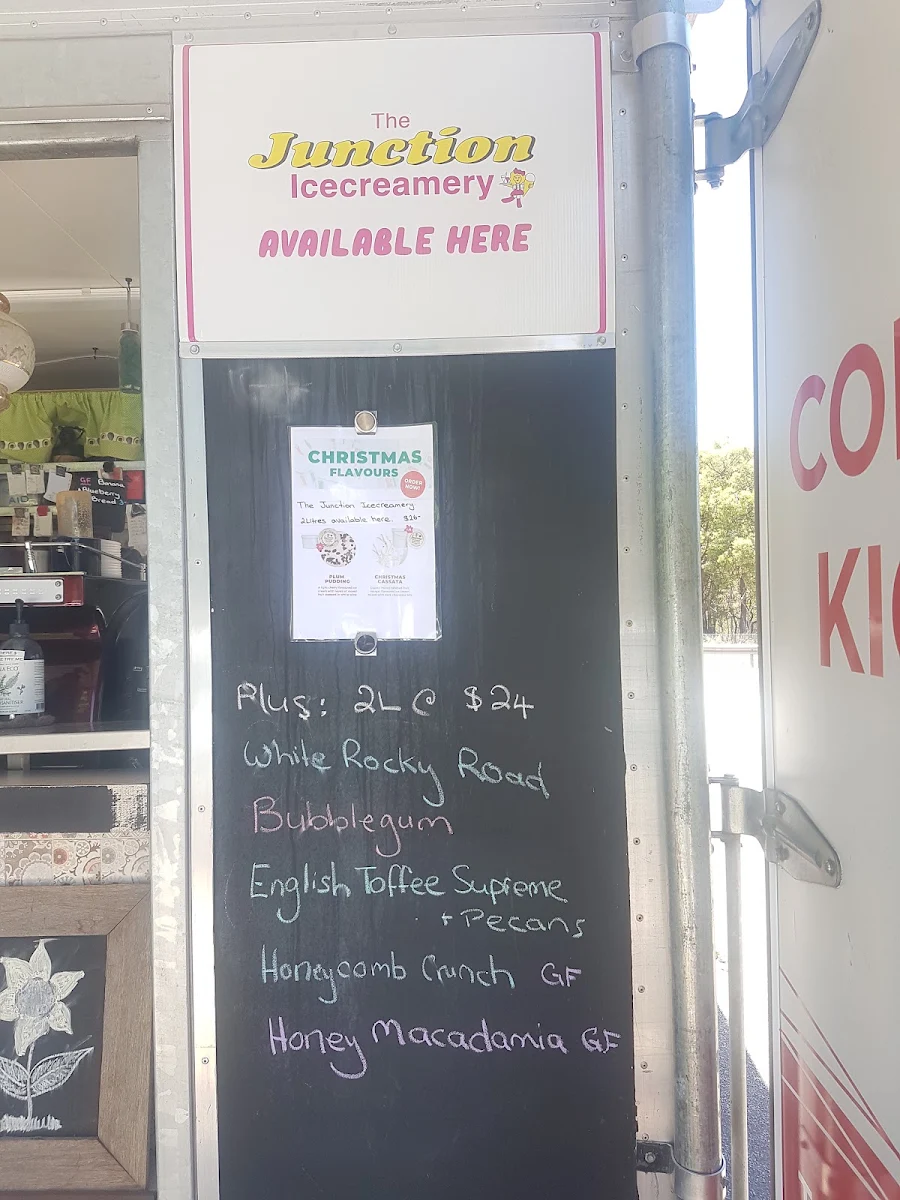 The
Junction
Icecreamery
AVAILABLE HERE
CHRISTMAS
FLAVOURS
ORDER
NOW!
The Junction Icecreamery
2Litres available here. $26-
PLUM
PUDDING
CHRISTMAS
CASSATA
Plus: 2L @ $24
White Rocky Road
Bubblegum
English Toffee Supreme
+ Pecans
Honeycomb Crunch GF
Honey Macadamia GF
GF Banana
Blueberry
Bread
CO
KI